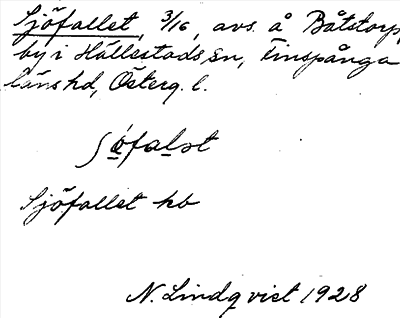 Sjöfallet, 3/16, avs. å Båtstorp,
by i Hällestads sn, Finspånga
läns hd, Österg. l.
ʃö́falət
Sjöfallet hb
N. Lindqvist 1928